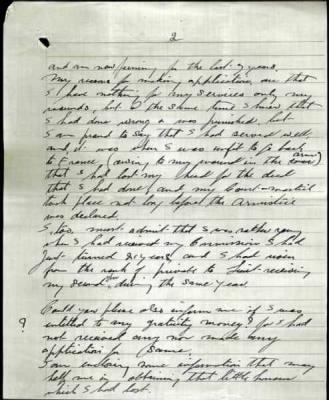 2
and am now farming for the last 7 years.
My reasons for making application, are that
I have nothing for my services only my
wounds, but at the same time I know that
I had done wrong & was punished, but
I am proud to say that I had served well,
and it was when I was unfit to go back
to France (owing to my wound in the arm)
that I had lost my head for the deed
that I had done, and my Court-martial
took place not long before the Armistice
was declared.
I, too, must admit that I was rather young
when I had received my Commission I had
just turned 21 years, and I had risen
from the rank of private to Lieut receiving
my second star during the same year.
Could you please also inform me if I was
? entitled to any gratuity money? for I had
not received any nor made any
application for same.
I am enclosing some information that may
help me in obtaining that little honour
which I had lost.